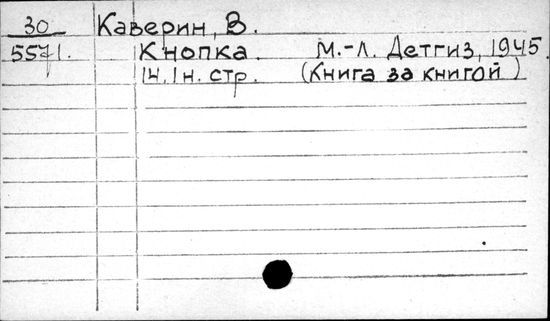 30 Каверин, В.
5571. Кнопка. М.-Л. Детгиз, 1945.
стр. (Книга за книгой)